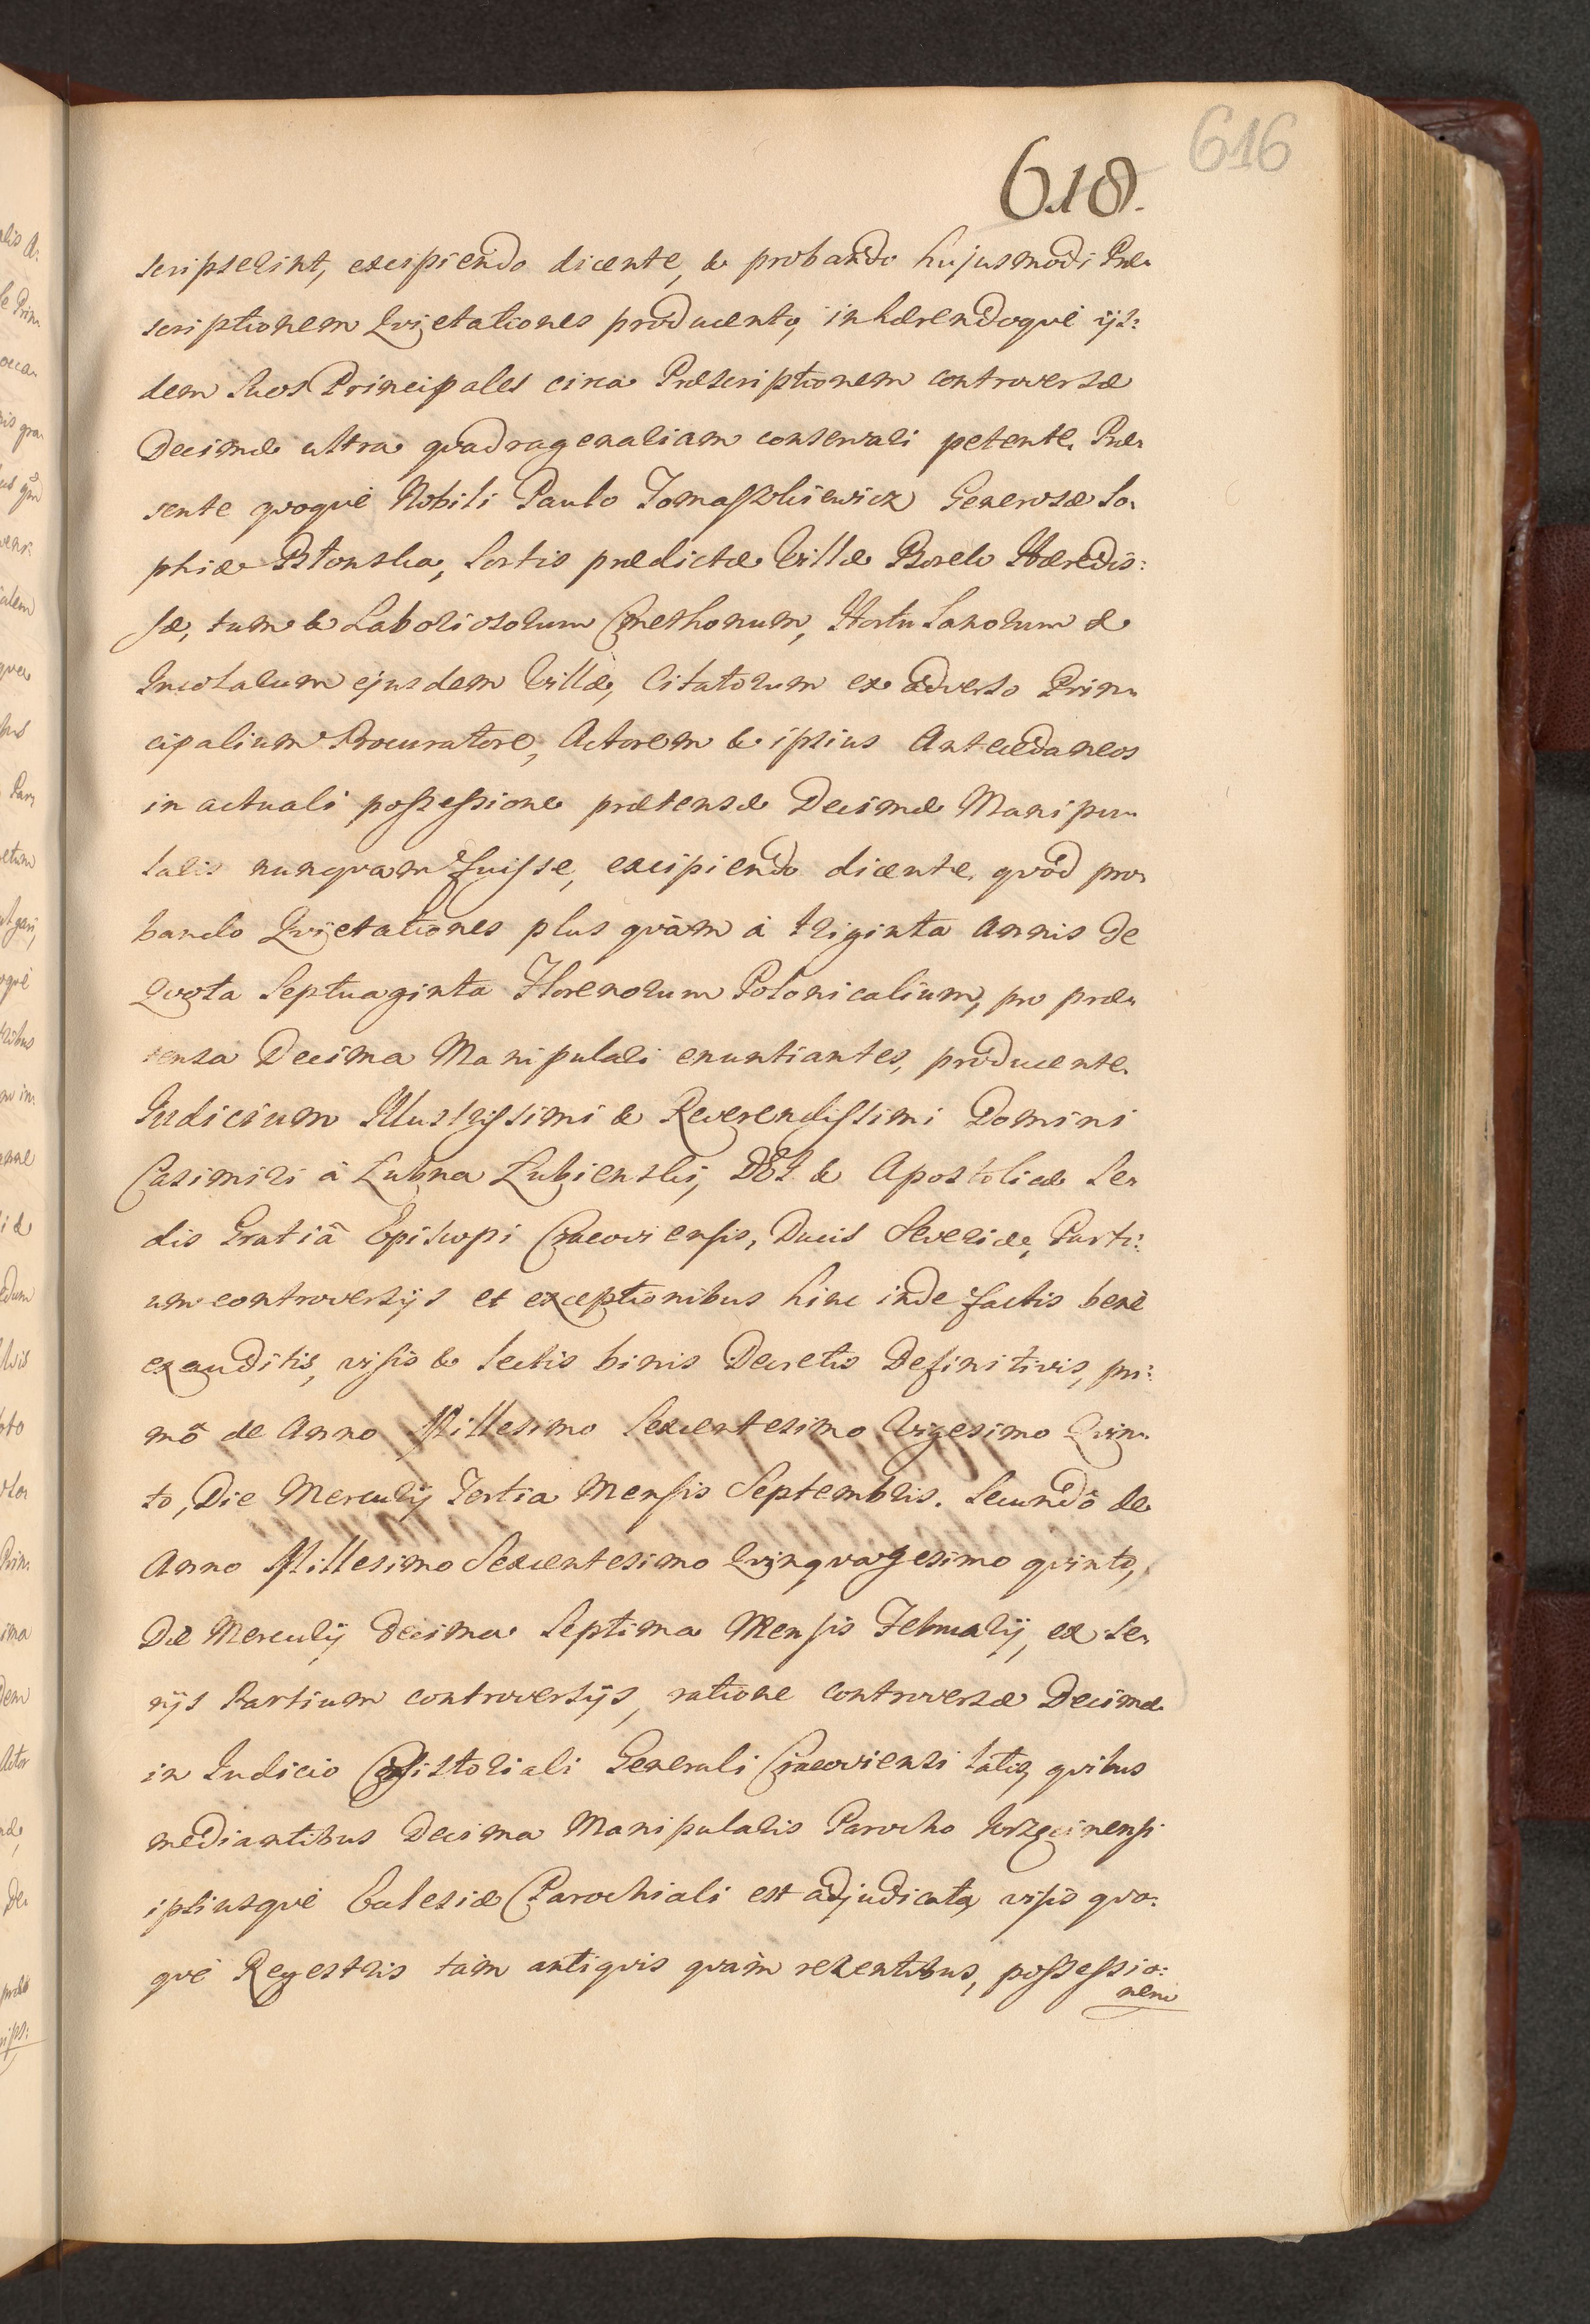 616
618.
scripserint, excipiendo dicente, & probando hujusmodi Præ-
scriptionem Qvietationes producente, inhærendoqvè ijs:
dem Suos Principales circa Præscriptionem controversæ
Decimæ ultra qvadragenaliam conservari petente. Præ-
sente qvoqvè Nobili Paulo Tomaszkiewicz Generosæ So-
phiæ Błonska, Sortis prædictæ Villæ Borek Hæredis:
sæ, tum & Laboriosorum Cmethonum, Hortulanorum &
Incolarum ejusdem Villæ, Citatorum ex adverso Prin-
cipalium Procuratore, Actorem & ipsius Antecedaneos
in actuali possessione prætensæ Decimæ Manipu-
laris nunqvam fuisse, excipiendo dicente, qvod pro-
bando Qvietationes plus qvàm à triginta Annis de
Qvota Septuaginta Florenorum Polonicalium, pro præ-
tensa Decima Manipulari enuntiantes, producente.
Iudicium Illustrissimi & Reverendissimi Domini
Casimiri à Łubna Łubienski, DEI & Apostolicæ Se-
dis Gratiâ Episcopi Cracoviensis, Ducis Severiæ, Parti:
um controversijs et exceptionibus hinc inde factis benè
exauditis, visis & lectis binis Decretis Definitivis, pri:
mô de Anno Millesimo Sexcentesimo Vigesimo Qvin-
to, Die Mercurij Tertia Mensis Septembris. Secundô de
Anno Millesimo Sexcentesimo Qvinqvagesimo qvinto,
Die Mercurij Decima Septima Mensis Februarij, ex se-
rijs Partium controversijs, ratione controversæ Decimæ
in Iudicio Consistoriali Generali Cracoviensi latis, qvibus
mediantibus Decima Manipularis Parocho
ipsiusqvè Ecclesiæ Parochiali est adjudicata, visis qvo:
qvè Regestris tàm antiqvis qvàm recentibus, possessio:
nem